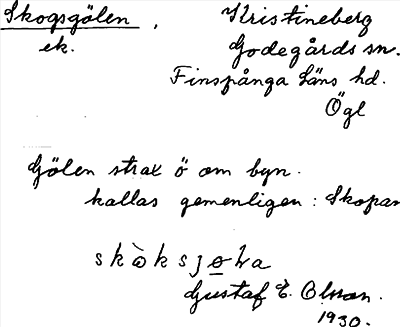 Skogsgölen, Kristineberg
ek. Godegårds sn.
Finspånga läns hd.
Ögl
Gölen strax ö om byn.
kallas gemenligen: Skopan
Gustaf E. Olsson.
1930.